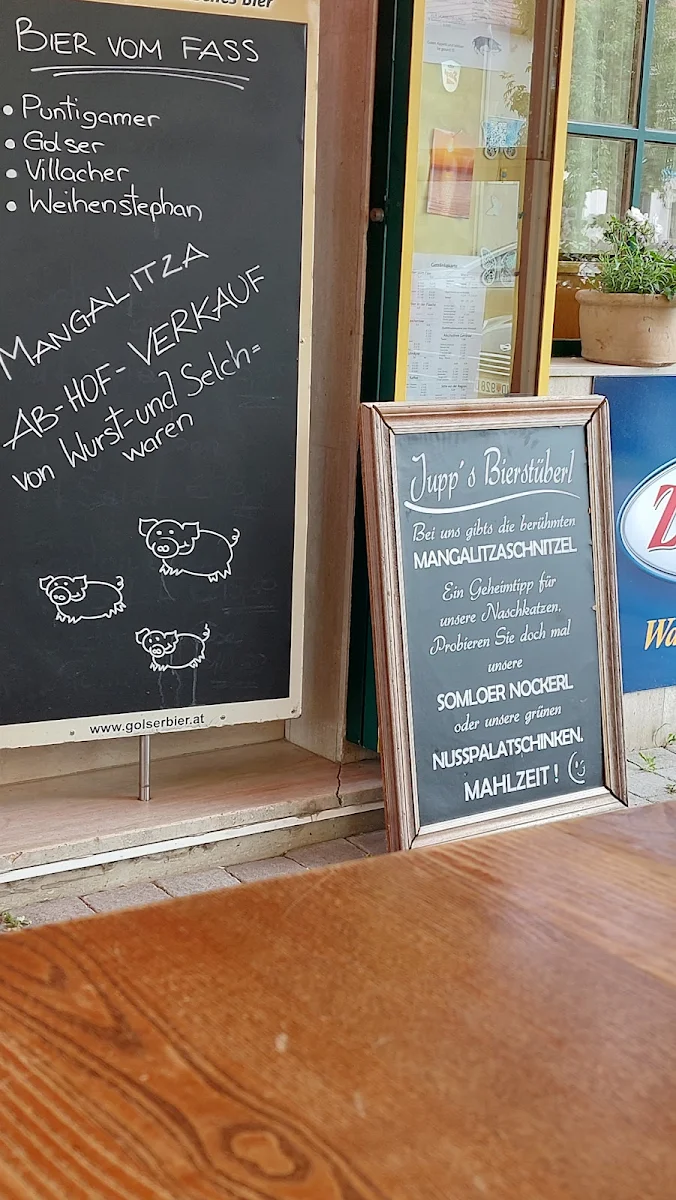 Bier
BIER VOM FASS
• Puntigamer
• Golser
• Villacher
• Weihenstephan
MANGALITZA
AB-HOF-VERKAUF
von Wurst-und Selch=
waren
www.golserbier.at
Jupp's Bierstüberl
Bei uns gibts die berühmten
MANGALITZASCHNITZEL
Ein Geheimtipp für
unsere Naschkatzen.
Probieren Sie doch mal
unsere
SOMLOER NOCKERL
oder unsere grünen
NUSSPALATSCHINKEN.
MAHLZEIT !
Z
Wa